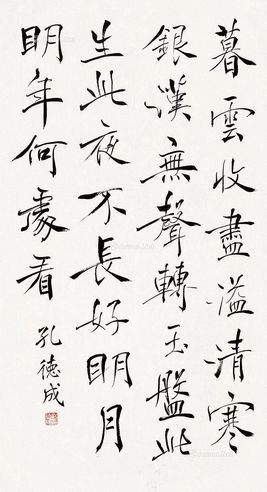 暮雲收盡溢清寒
銀漢無聲轉玉盤此
生此夜不長好明月
明年何處看
孔德成